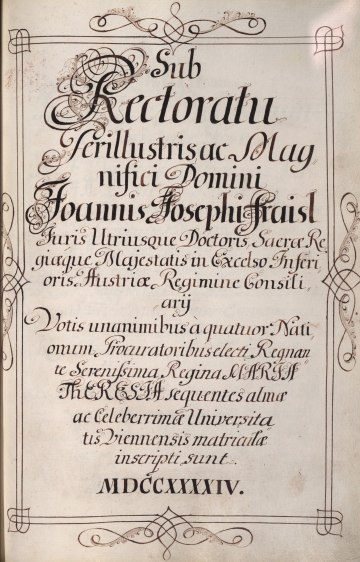 Sub
Rectoratu
Perillustris ac Mag
nifici Domini
Joannis Josephi Fraisl
Juris Utriusque Doctoris, Sacræ Re
giæque Majestatis in Excelso Inferi
oris Austriæ Regimine Consili
arij
Votis unanimibus à quatuor Nati
onum Procuratoribus electi Regnan
te Serenissima Regina MARIA
THERESIA sequentes almæ
ac Celeberrimæ Universita
tis Viennensis matriculæ
inscripti sunt
MDCCXXXXIV.